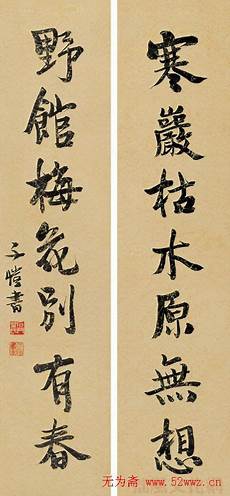 寒巖枯木原無想
野館梅花別有春
子愷書
无为斋 www.52wwz.cn